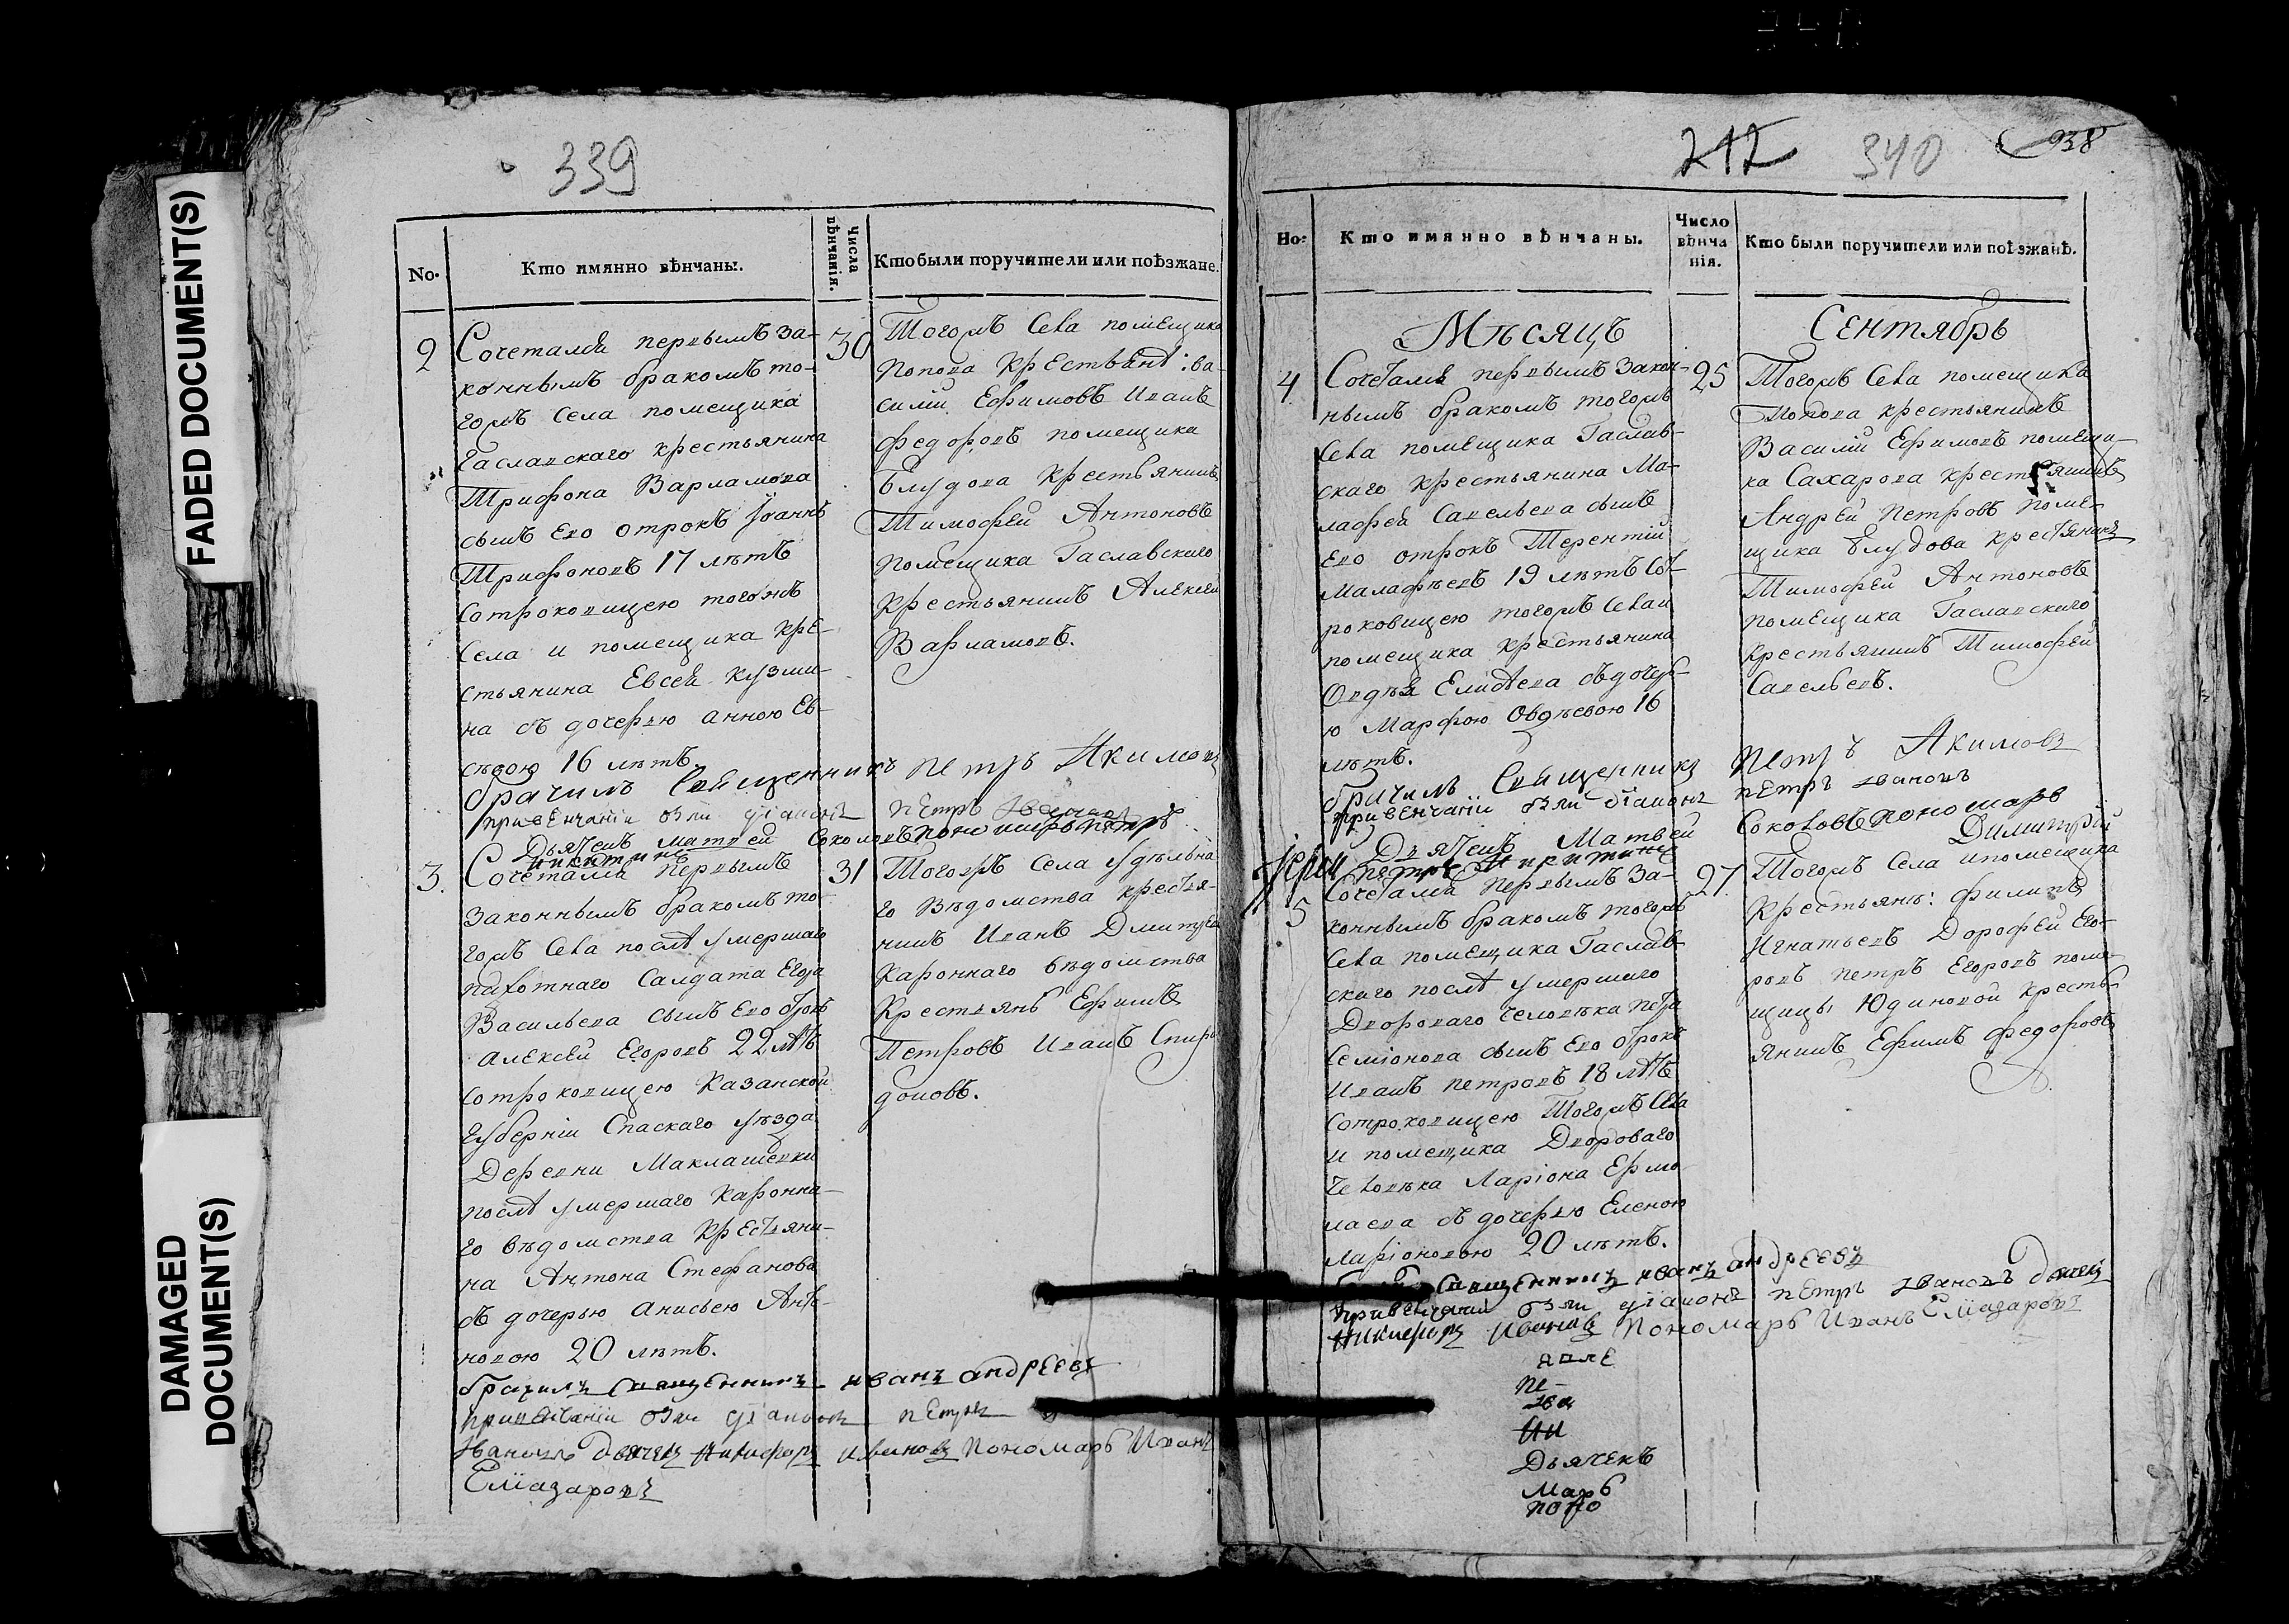 FADED DOCUMENT(S)
DAMAGED
DOCUMENT(S)
339
No.
Кто имянно вѣнчаны.
Числа
вѣнчанія.
Кто были поручители или поѣзжане.
2
Сочетался первымъ за-
коннымъ бракомъ то-
гожъ Села помещика
Гаславскаго крестьянина
Трифона Варламова
сынъ Его отрокъ Іоаннъ
Трифоновъ 17 лѣтъ
сотроковицею тогожъ
Села и помещика кре-
стьянина Евсея кузми-
на съ дочерью анною Ев-
сѣвою 16 лѣтъ.
30
Тогожъ Села помещика
Попова Крестьянѣ: ва-
силій Ефимовъ Иванъ
Федоровъ помещика
Блудова Крестьянинъ
Тимофей Антоновъ
Помещика Гаславскаго
Крестьянинъ Алексей
Варламовъ.
брачилъ Священникъ Петръ Акимовъ
при венчаніи были діаконъ петръ Ивановъ
Дьячекъ матвей Соколовъ пономарь петръ
никитинъ
3.
Сочетался первымъ
законнымъ бракомъ то-
гожъ Села послѣ умершаго
пахотнаго Салдата Егора
Васильева сынъ Его отрокъ
алексей Егоровъ 22 лѣтъ
сотроковицею Казанской
Губерніи Спаскаго уѣзда
Деревни Маклашевки
послѣ умершаго Каронна-
го вѣдомства Крестьяни-
на Антона Стефанова
съ дочерью анисьею Анто-
новою 20 лѣтъ.
31
Тогожъ Села удѣльна-
го Вѣдомства кресья-
нинъ Иванъ Дмитрев
Кароннаго вѣдомства
Крестьянѣ Ефимъ
Петровъ Иванъ Спири
доновъ.
брачилъ Священникъ иванъ андреевъ
при венчаніи были діаконъ петръ
Ивановъ Дьячекъ Никифоръ ивановъ Пономарь Иванъ
Еліазаровъ
212 340 938
Но:
Кто имянно вѣнчаны.
Число
вѣнча
нія.
Кто были поручители или поѣзжанѣ.
Мѣсяцъ Сентябрь
4
Сочетался первымъ закон-
нымъ бракомъ тогожъ
Села помещика Гаслав-
скаго крестьянина Ма-
лафея Савельева сынъ
Его отрокъ Терентій
Малафѣевъ 19 лѣтъ Сот-
роковицею тогожъ Села и
помещика крестьянина
Овдѣя Елисѣева съ дочерь-
ю Марфою Овдѣевою 16
лѣтъ.
25
Тогожъ Села помещика
Попова крестьянинъ
Василій Ефимовъ помещи-
ка Сахарова крестьянинъ
Андрей Петровъ поме-
щика Блудова крестьянинъ
Тимофей Антоновъ
помещика Гаславскаго
Крестьянинъ Тимофей
Савельевъ.
брачилъ Священникъ Петръ Акимовъ
при венчаніи были діаконъ петръ ивановъ
Дьячекъ Матвей Соколовъ пономарь
Іерей петръ Никитинъ Димитрій
5
Сочетался первымъ за-
коннымъ бракомъ тогожъ
Села помещика Гаслав-
скаго послѣ умершаго
Двороваго Человѣка Петра
Семіонова сынъ Его отрокъ
Иванъ петровъ 18 лѣтъ
Сотроковицею Тогожъ Села
и помещика Двороваго
Человѣка Ларіона Ермо-
лаева съ дочерью Еленою
Ларіоновою 20 лѣтъ.
27
Тогожъ Села и помещика
Крестьянъ: филипъ
Игнатьевъ Дорофей Его-
ровъ петръ Егоровъ поме-
щицы Юдиновой Кресть-
янинъ Ефимъ Федоровъ
Священникъ иванъ андреевъ
при венчаніи были діаконъ петръ ивановъ Дьячекъ
Никифоръ Ивановъ Пономарь Иванъ Еліазаровъ
пе-
ива
ни
Дьячекъ
Марь
поно